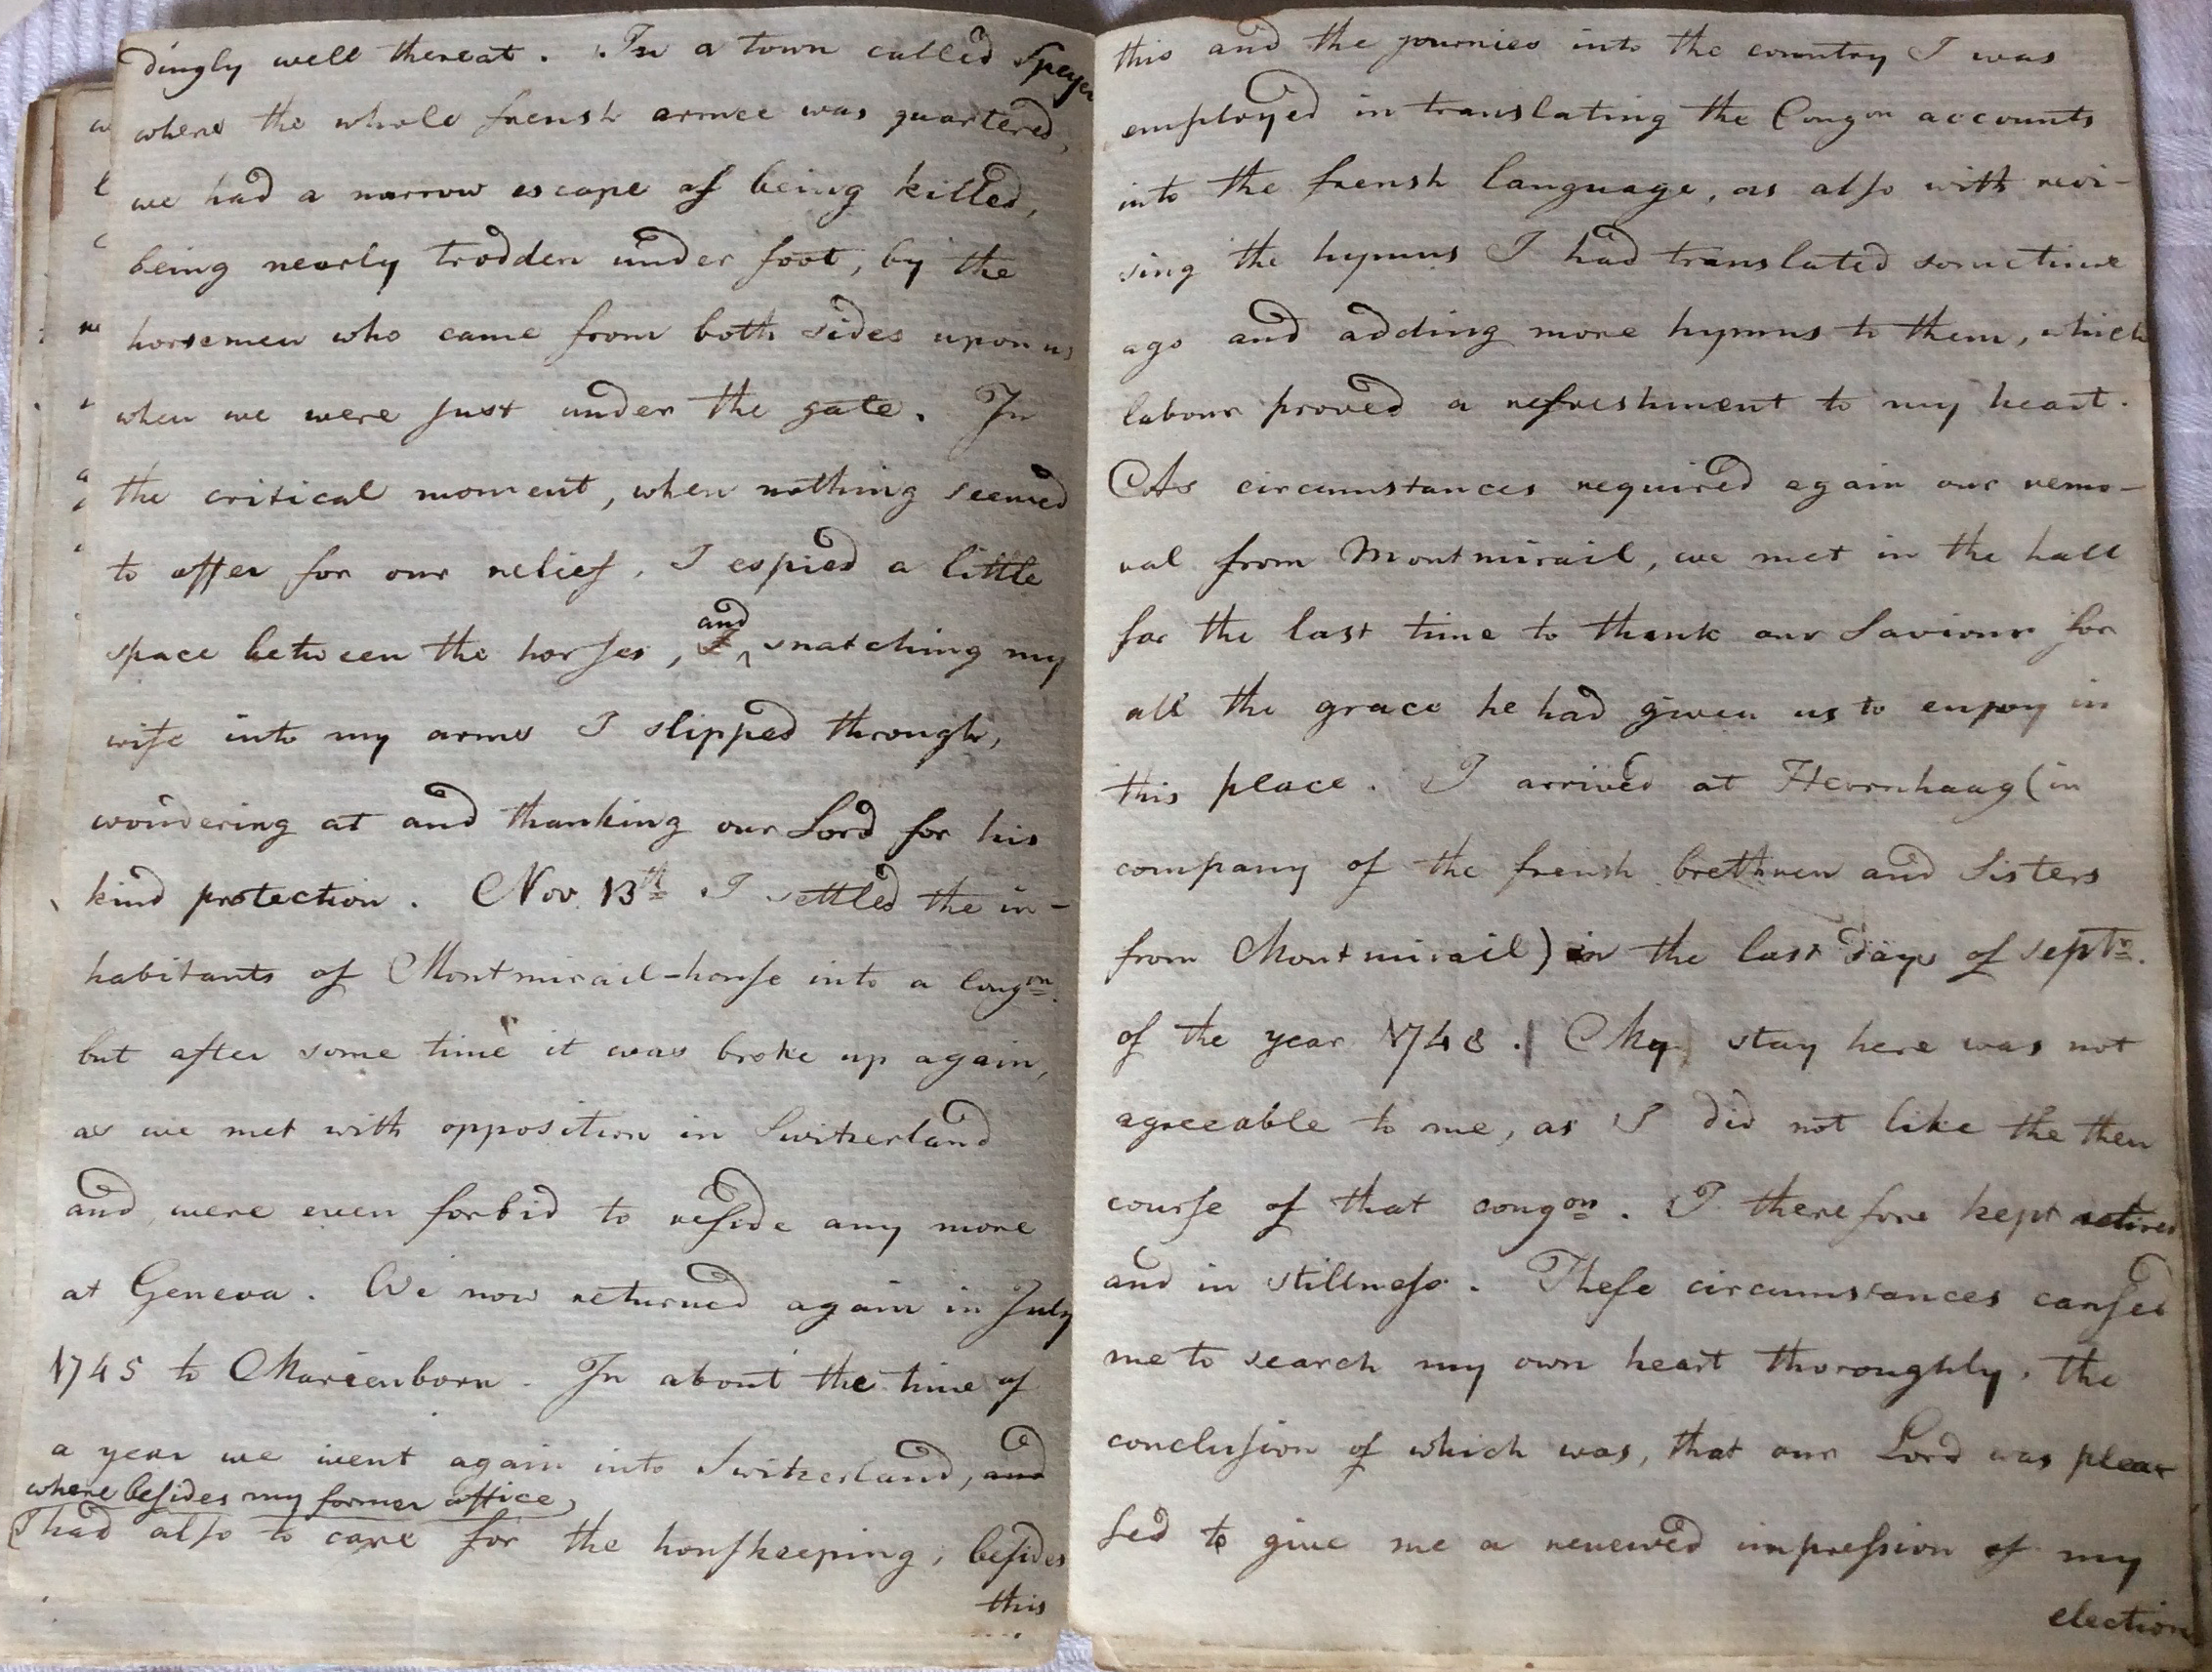 dingly well thereat. In a town called Speyer
where the whole frensh armee was quartered,
we had a narrow escape of being killed,
being nearly trodden under foot, by the
horsemen who came from both sides upon us
when we were just under the gate. In
the critical moment, when nothing seemed
to offer for our relief, I espied a little
and
space between the horses, snatching my
wife into my arms I slipped through,
wondering at and thanking our Lord for his
kind protection. Nov. 13th I settled the in-
habitants of Montmirail-house into a Congon.
but after some time it was broke up again,
as we met with opposition in Switzerland
and were even forbid to reside any more
at Geneva. We now returned again in July
1745 to Marienborn. In about the time of
a year we went again into Switzerland, and
where besides my former office,
I had also to care for the houskeeping, besides
this
this and the journies into the country I was
employed in translating the Congon accounts
into the frensh language, as also with revi-
sing the hymns I had translated sometime
ago and adding more hymns to them, which
labour proved a refreshment to my heart.
As circumstances required again our remo-
val from Montmirail, we met in the hall
for the last time to thank our Saviour for
all the grace he had given us to enjoy in
this place. I arrived at Herrnhaag (in
company of the frensh brethren and Sisters
from Montmirail) in the last days of Septr.
of the year 1748. My stay here was not
agreeable to me, as I did not like the then
course of that congon. I therefore kept retired
and in stillness. These circumstances caused
me to search my own heart thoroughly, the
conclusion of which was, that our Lord was plea
sed to give me a renewed impression of my
election